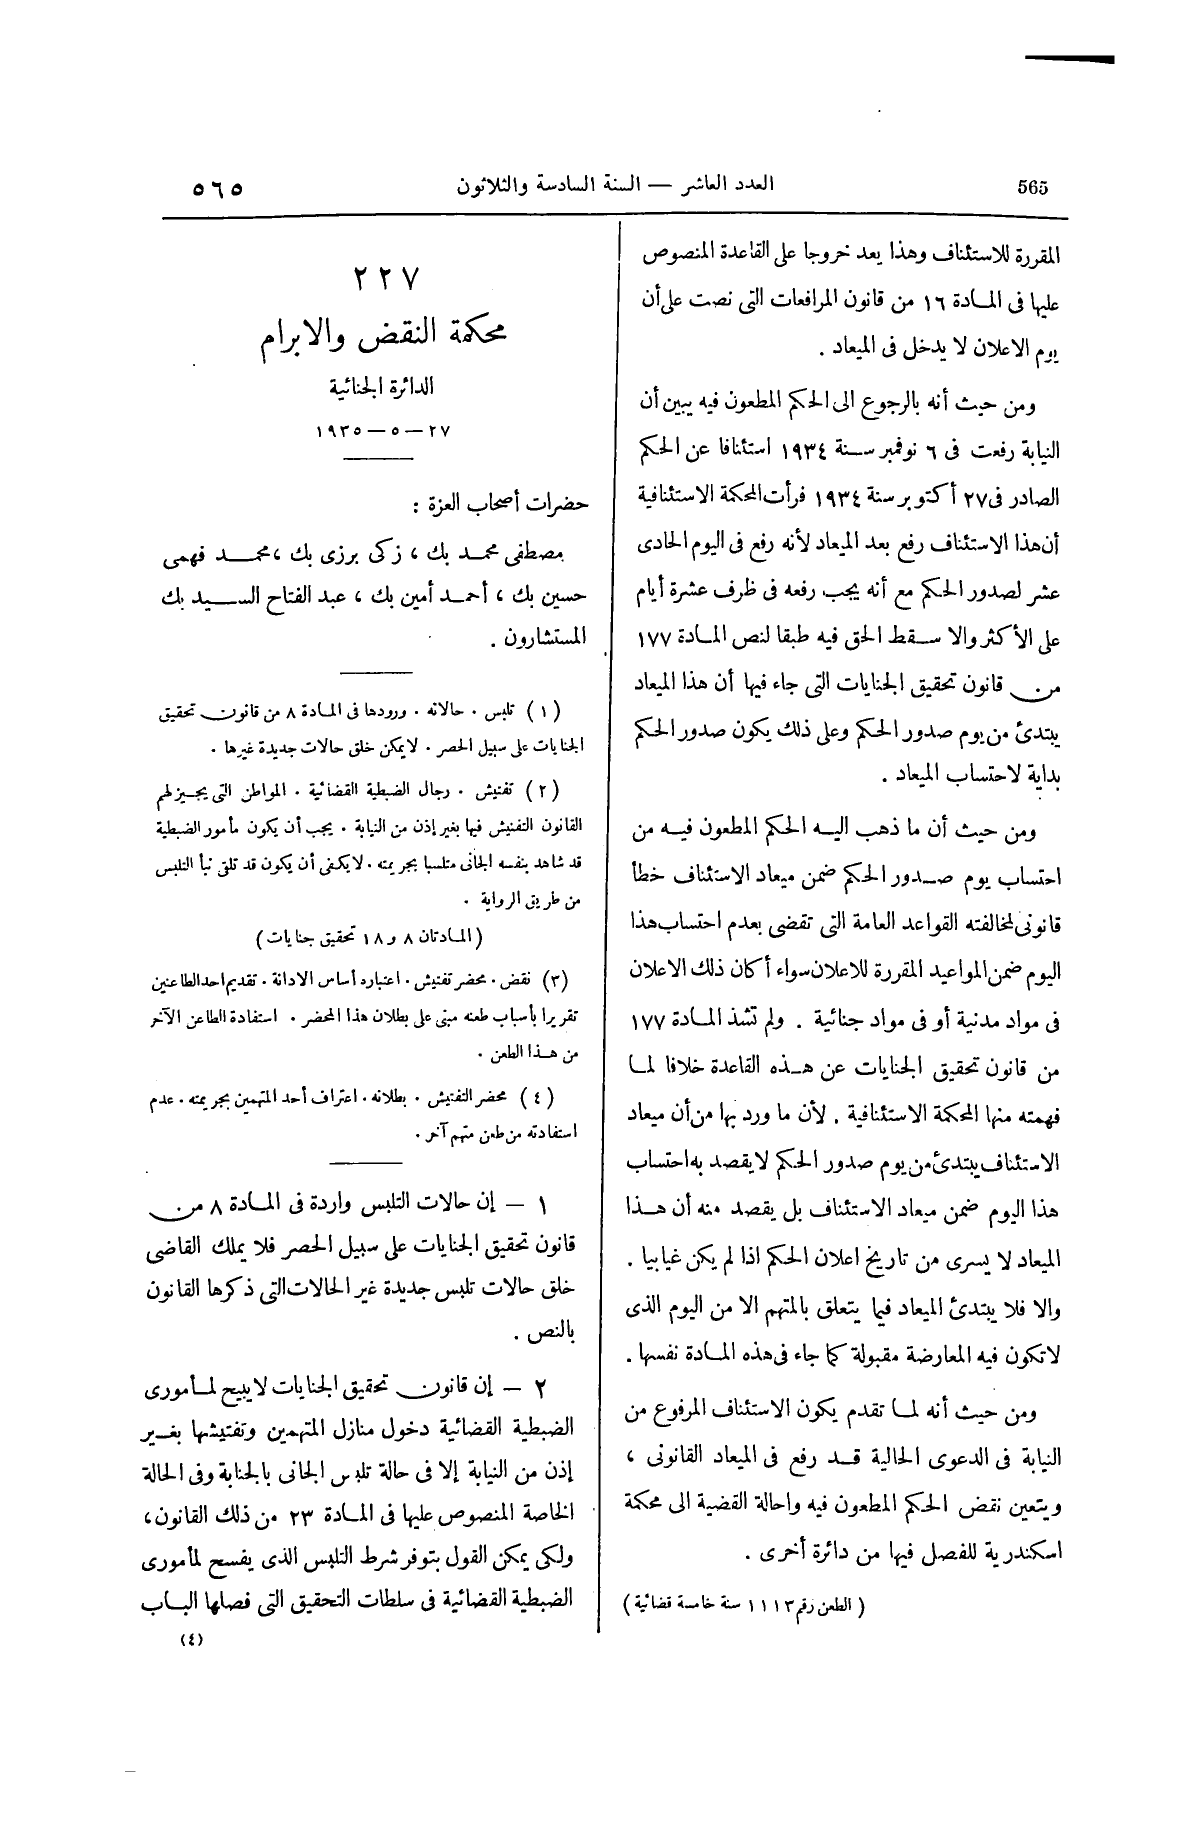 565
العدد العاشر — السنة السادسة والثلاثون
٥٦٥
المقررة للاستئناف وهذا يعد خروجا على القاعدة المنصوص
عليها فى المادة ١٦ من قانون المرافعات التى نصت على أن
يوم الاعلان لا يدخل فى الميعاد .
ومن حيث أنه بالرجوع الى الحكم المطعون فيه يبين أن
النيابة رفعت فى ٦ نوفمبر سنة ١٩٣٤ استئنافا عن الحكم
الصادر فى ٢٧ أكتوبر سنة ١٩٣٤ فرأت المحكمة الاستئنافية
أن هذا الاستئناف رفع بعد الميعاد لأنه رفع فى اليوم الحادى
عشر لصدور الحكم مع أنه يجب رفعه فى ظرف عشرة أيام
على الأكثر والا سقط الحق فيه طبقا لنص المادة ١٧٧
من قانون تحقيق الجنايات التى جاء فيها أن هذا الميعاد
يبتدئ من يوم صدور الحكم وعلى ذلك يكون صدور الحكم
بداية لاحتساب الميعاد .
ومن حيث أن ما ذهب اليه الحكم المطعون فيه من
احتساب يوم صدور الحكم ضمن ميعاد الاستئناف خطأ
قانونى لمخالفته القواعد العامة التى تقضى بعدم احتساب هذا
اليوم ضمن المواعيد المقررة للاعلان سواء أكان ذلك الاعلان
فى مواد مدنية أو فى مواد جنائية . ولم تشذ المادة ١٧٧
من قانون تحقيق الجنايات عن هذه القاعدة خلافا لما
فهمته منها المحكمة الاستئنافية . لأن ما ورد بها من أن ميعاد
الاستئناف يبتدئ من يوم صدور الحكم لا يقصد به احتساب
هذا اليوم ضمن ميعاد الاستئناف بل يقصد منه أن هذا
الميعاد لا يسرى من تاريخ اعلان الحكم اذا لم يكن غيابيا .
والا فلا يبتدئ الميعاد فيما يتعلق بالمتهم الا من اليوم الذى
لا تكون فيه المعارضة مقبولة كما جاء فى هذه المادة نفسها .
ومن حيث أنه لما تقدم يكون الاستئناف المرفوع من
النيابة فى الدعوى الحالية قد رفع فى الميعاد القانونى ،
ويتعين نقض الحكم المطعون فيه واحالة القضية الى محكمة
اسكندرية للفصل فيها من دائرة أخرى .
( الطعن رقم ١١١٣ سنة خامسة قضائية )
٢٢٧
محكمة النقض والابرام
الدائرة الجنائية
٢٧ — ٥ — ١٩٣٥
حضرات أصحاب العزة :
مصطفى محمد بك ، زكى برزى بك ، محمد فهمى
حسين بك ، أحمد أمين بك ، عبد الفتاح السيد بك
المستشارون .
( ١ ) تلبس . حالاته . ورودها فى المادة ٨ من قانون تحقيق
الجنايات على سبيل الحصر . لا يمكن خلق حالات جديدة غيرها .
( ٢ ) تفتيش . رجال الضبطية القضائية . المواطن التى يجيز لهم
القانون التفتيش فيها بغير إذن من النيابة . يجب أن يكون مأمور الضبطية
قد شاهد بنفسه الجانى متلبسا بجريمته . لا يكفى أن يكون قد تلقى نبأ التلبس
من طريق الرواية .
( المادتان ٨ و ١٨ تحقيق جنايات )
( ٣ ) نقض . محضر تفتيش . اعتباره أساس الادانة . تقديم احد الطاعنين
تقريرا بأسباب طعنه مبنى على بطلان هذا المحضر . استفادة الطاعن الآخر
من هذا الطعن .
( ٤ ) محضر التفتيش . بطلانه . اعتراف أحد المتهمين بجريمته . عدم
استفادته من طعن متهم آخر .
١ — إن حالات التلبس واردة فى المادة ٨ من
قانون تحقيق الجنايات على سبيل الحصر فلا يملك القاضى
خلق حالات تلبس جديدة غير الحالات التى ذكرها القانون
بالنص .
٢ — إن قانون تحقيق الجنايات لا يبيح لمأمورى
الضبطية القضائية دخول منازل المتهمين وتفتيشها بغير
إذن من النيابة إلا فى حالة تلبس الجانى بالجناية وفى الحالة
الخاصة المنصوص عليها فى المادة ٢٣ من ذلك القانون ،
ولكى يمكن القول بتوفر شرط التلبس الذى يفسح لمأمورى
الضبطية القضائية فى سلطات التحقيق التى فصلها الباب
(٤)